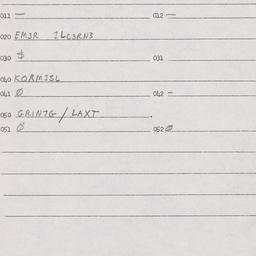 011 — 012 —
020 EMJR ILCJRNS
030 $ 031
040 KORMISL
041 Ø 042 -
050 GRINIG / LAXT .
051 Ø 052 Ø